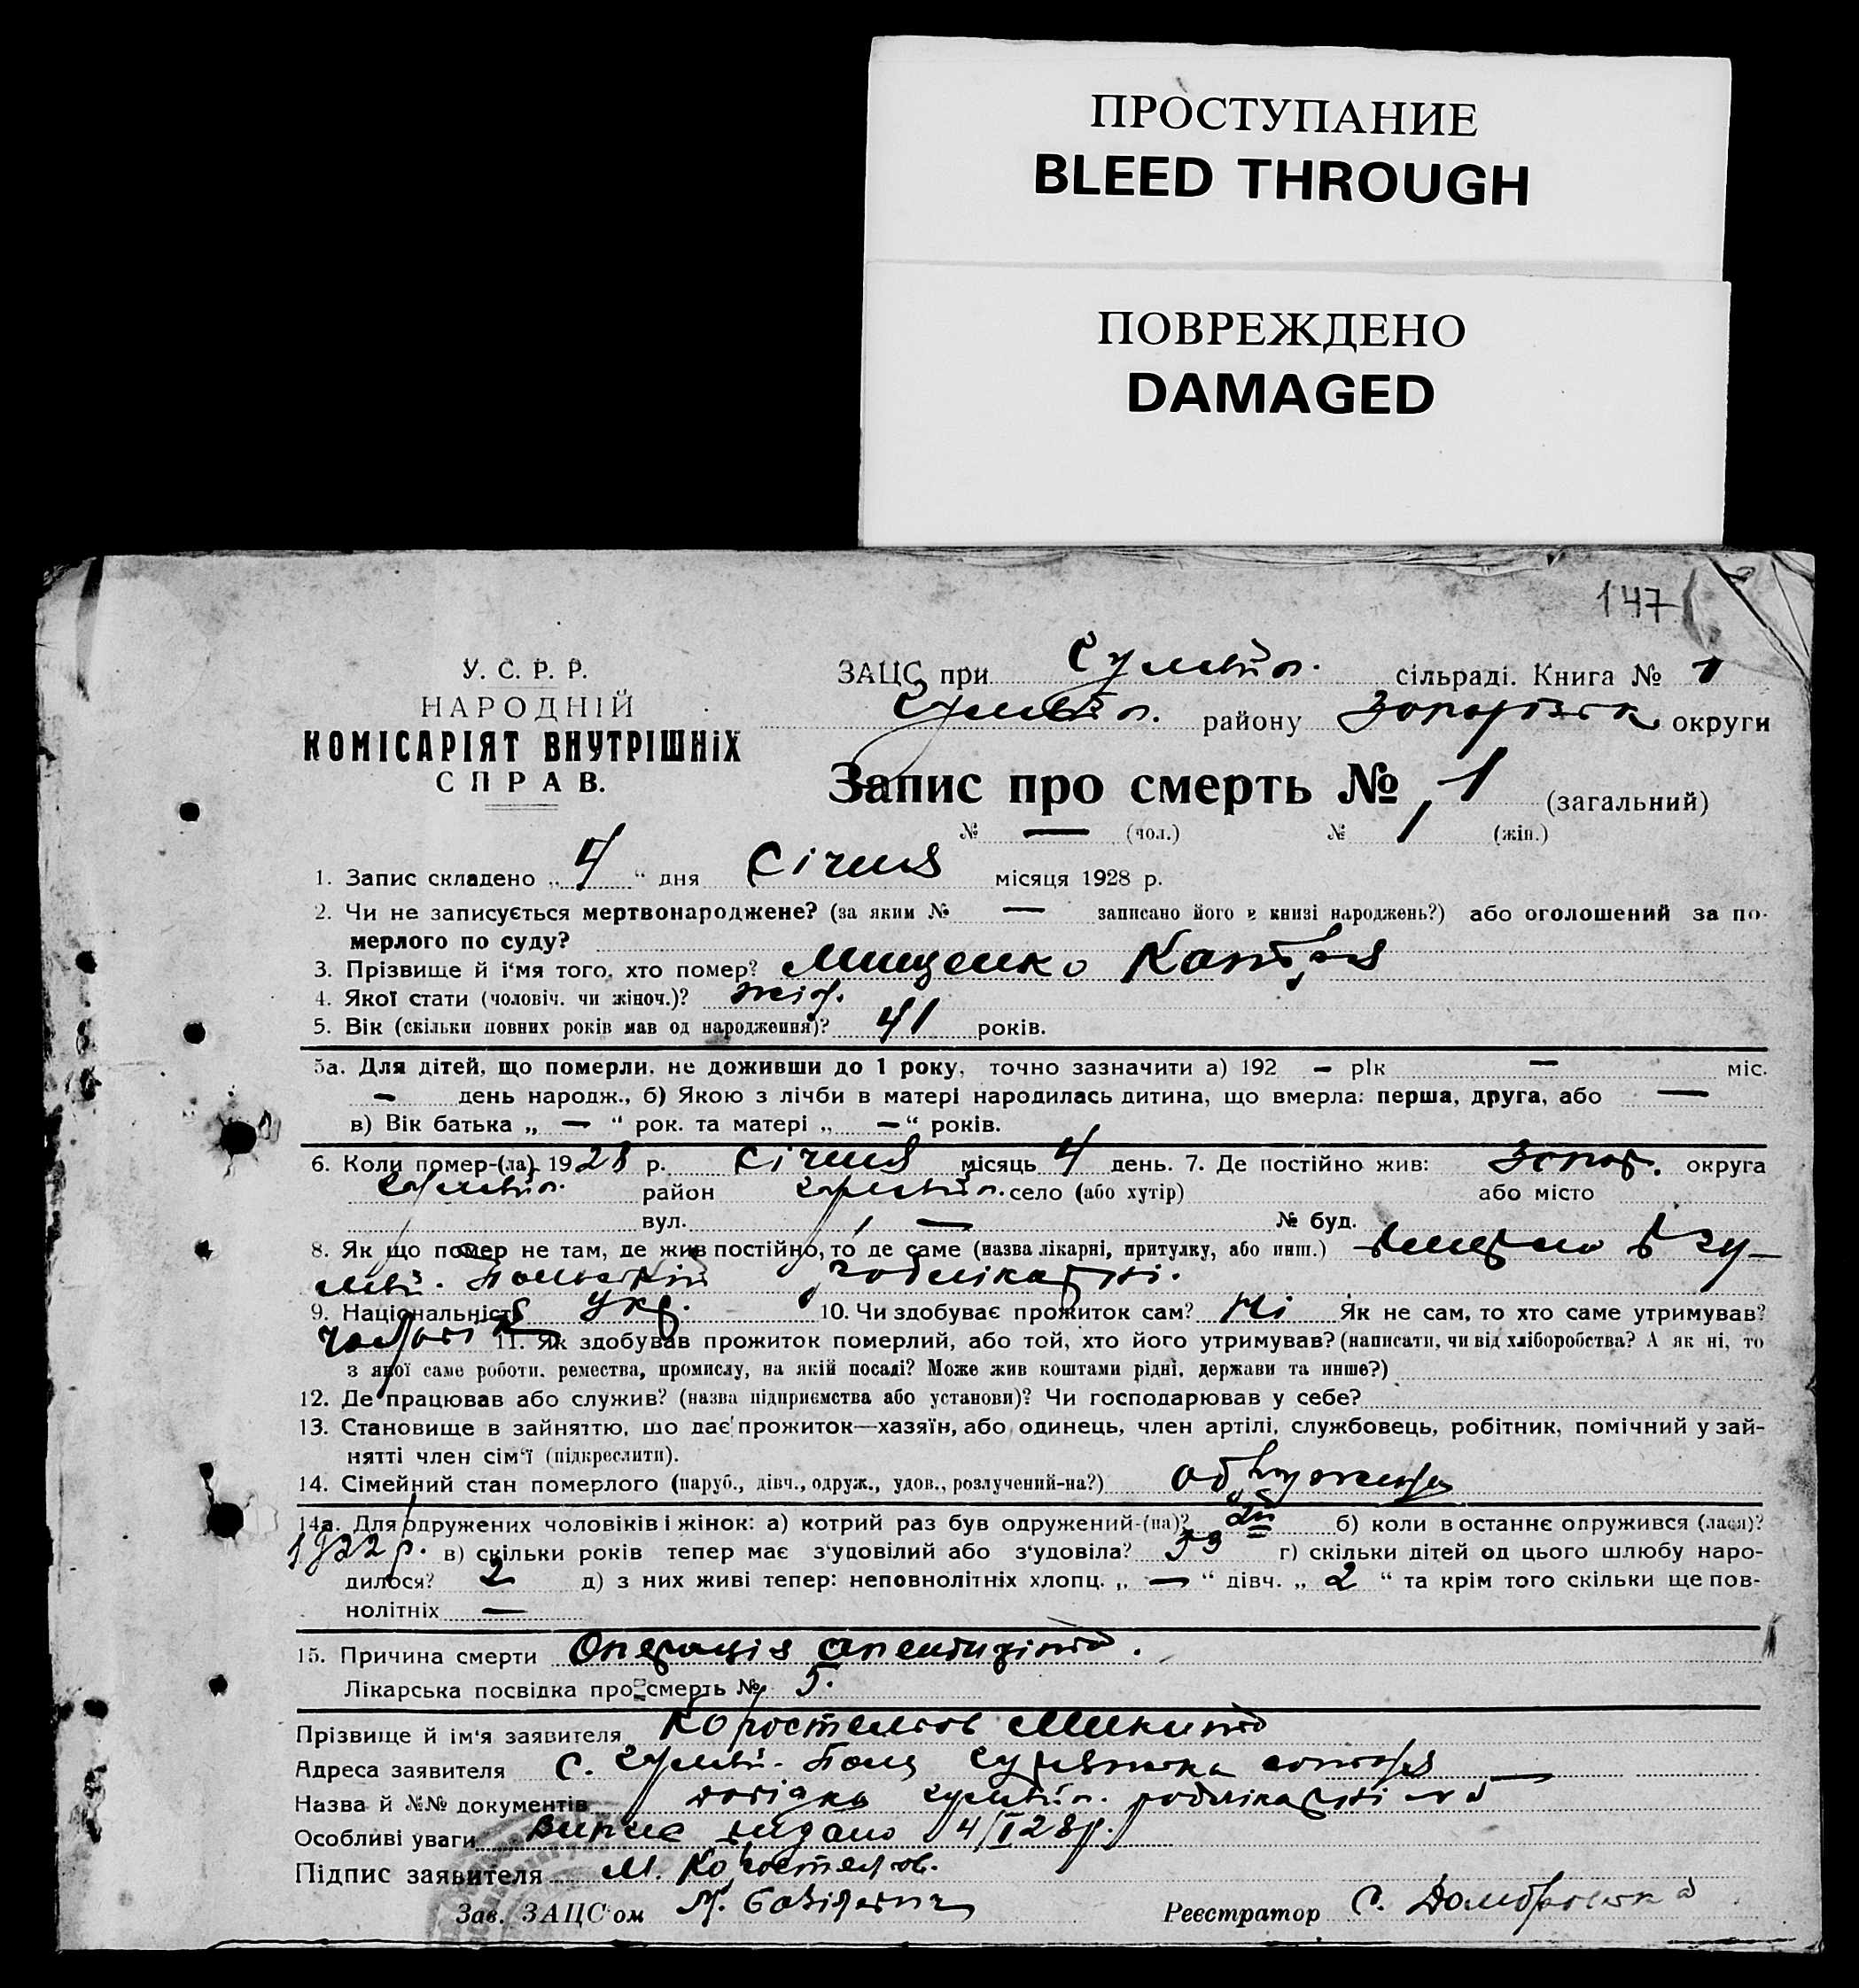 ПРОСТУПАНИЕ
BLEED THROUGH
ПОВРЕЖДЕНО
DAMAGED
147
У. С. Р. Р.
НАРОДНІЙ
КОМІСАРІЯТ ВНУТРІШНіХ
СПРАВ.
ЗАЦС при Гуляйп. сільраді. Книга № 1
Гуляйп. району Запоріжск округи
Запис про смерть № 1 (загальний)
№ — (чол.) № 1 (жін.)
1. Запис складено „ 4 “ дня Січня місяця 1928 р.
2. Чи не записується мертвонароджене? (за яким № — записано його в книзі народжень?) або оголошений за по-
мерлого по суду?
3. Прізвище й і'мя того, хто помер? Мищенко
4. Якої стати (чоловіч. чи жіноч.)?
5. Вік (скільки повних років мав од народження)? 41 років.
5а. Для дітей, що померли, не доживши до 1 року, точно зазначити а) 192 – рік — міс.
– день народж., б) Якою з лічби в матері народилась дитина, що вмерла: перша, друга, або —
в) Вік батька „ — “ рок. та матері „ — “ років.
6. Коли помер-(ла) 1928 р. Січня місяць 4 день. 7. Де постійно жив: Запор. округа
Гуляйп. район Гуляйп. село (або хутір) або місто
вул. — № буд.
8. Як що помер не там, де жив постійно, то де саме (назва лікарні, притулку, або инш.) вмерла в Гу-
ляй-Польскій робликарні.
9. Національність Укр. 10. Чи здобуває прожиток сам? Ні Як не сам, то хто саме утримував?
чоловік 11. Як здобував прожиток померлий, або той, хто його утримував? (написати, чи від хліборобства? А як ні, то
з якої саме роботи, ремества, промислу, на якій посаді? Може жив коштами рідні, держави та инше?)
12. Де працював або служив? (назва підприємства або установи)? Чи господарював у себе?
13. Становище в зайняттю, що дає прожиток—хазяїн, або одинець, член артілі, службовець, робітник, помічний у зай-
нятті член сім'ї (підкреслити).
14. Сімейний стан померлого (паруб., дівч., одруж., удов., розлучений-на?) одружена
14а. Для одружених чоловіків і жінок: а) котрий раз був одружений-(на)? 2й б) коли востаннє опружився (лася)?
1922 р. в) скільки років тепер має з'удовілий або з'удовіла? 39 г) скільки дітей од цього шлюбу наро-
дилося? 2 д) з них живі тепер: неповнолітніх хлопц. „ — “ дівч. „ 2 “ та крім того скільки ще пов-
нолітніх —
15. Причина смерти Операція апендиціта.
Лікарська посвідка про смерть № 5.
Прізвище й ім'я заявителя Коростельов Микита
Адреса заявителя с. Гуляй-Поле
Назва й №№ документів довідка Гуляйп. робликарні № 5
Особливі уваги Випис видано 4/I 28р.
Підпис заявителя М. Коростельов.
Зав. ЗАЦС'ом
Реєстратор С. Домбровська